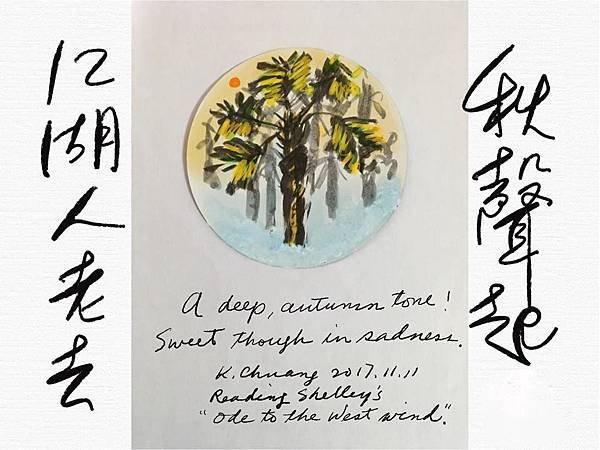 秋聲起
江湖人老去
A deep, autumn tone!
Sweet though in sadness.
K. Chuang 2017.11.11
Reading Shelley's
"Ode to the West wind".